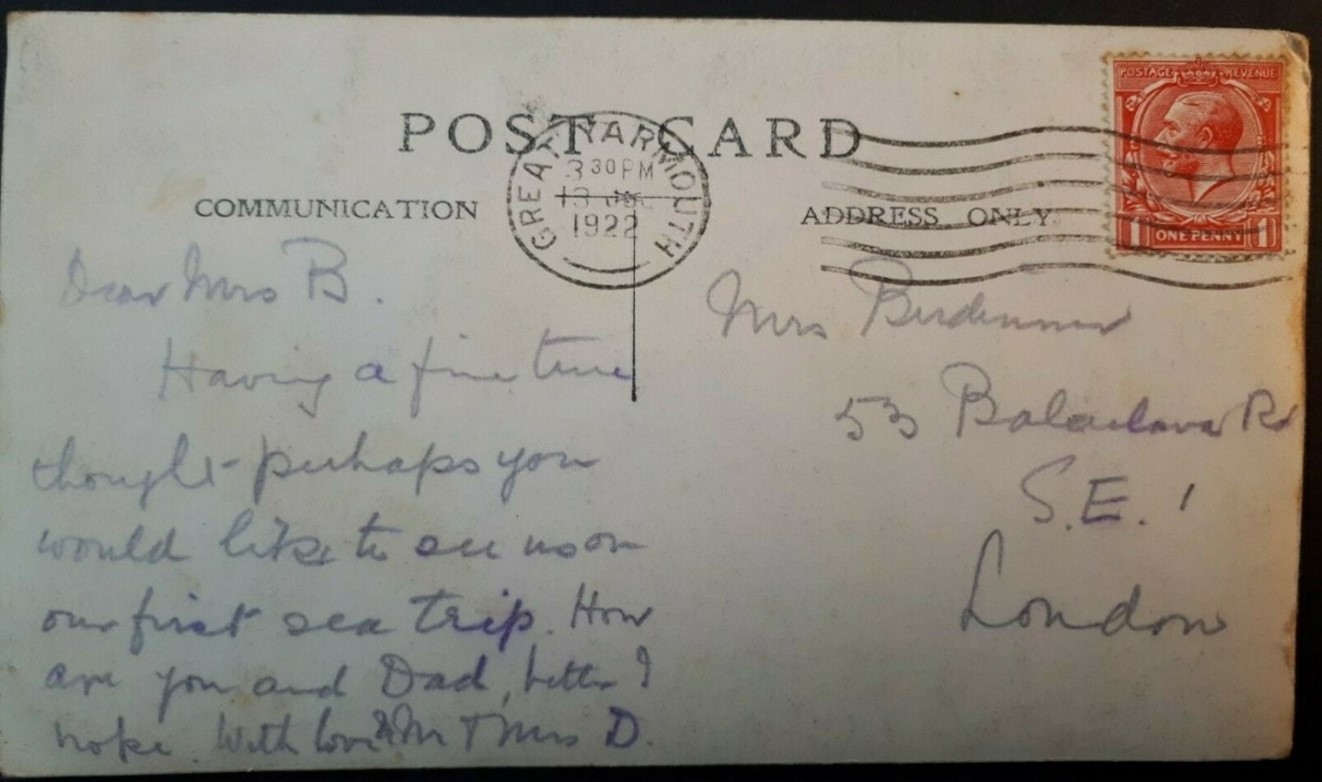 POST CARD
GREAT YARMOUTH
3 30 PM
13
1922
COMMUNICATION
ADDRESS ONLY
POSTAGE REVENUE
1 ONE PENNY 1
Dear Mrs B.
Having a fine time
thought perhaps you
would like to see us on
our first sea trip. How
are you and Dad, better I
hope. With love Mr & Mrs D.
Mrs
53 Balaclava Rd
S.E. 1
London